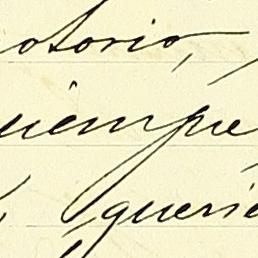 otorio,
iempre
querie